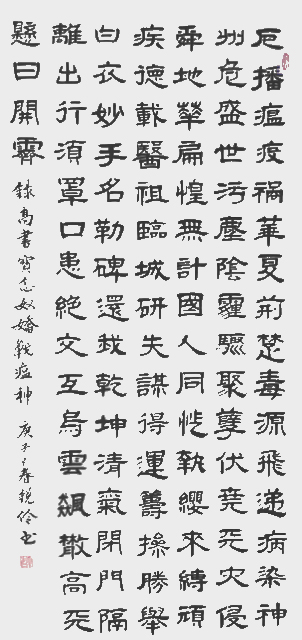 厄播瘟疫禍華夏荊楚毒源飛遞病染神
州危盛世污塵陰霾驟聚孽伏堯天灾侵
舜地華扁惶無計國人同忾執纓來縛頑
疾德載醫祖臨城研失謀得運籌操勝舉
白衣妙手名勒碑還我乾坤清氣閉門隔
離出行須罩口患絶交互烏雲飆散高天
懸日開霽 錄高書寶念奴嬌戰瘟神 庚子之春